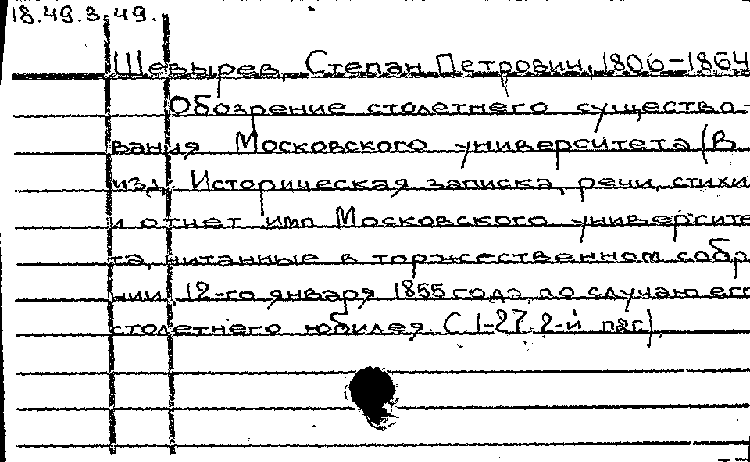 18.49.3.49.
Шевырев, Степан Петрович, 1806-1864
Обозрение столетнего существо-
вания Московского университета (В
изд. Историческая записка, речи, стихи
и отчет имп Московского университе
та, читанные в торжественном собр
нии 12-го января 1855 года, по случаю его
столетнего юбилея С 1-27, 2-й паг)